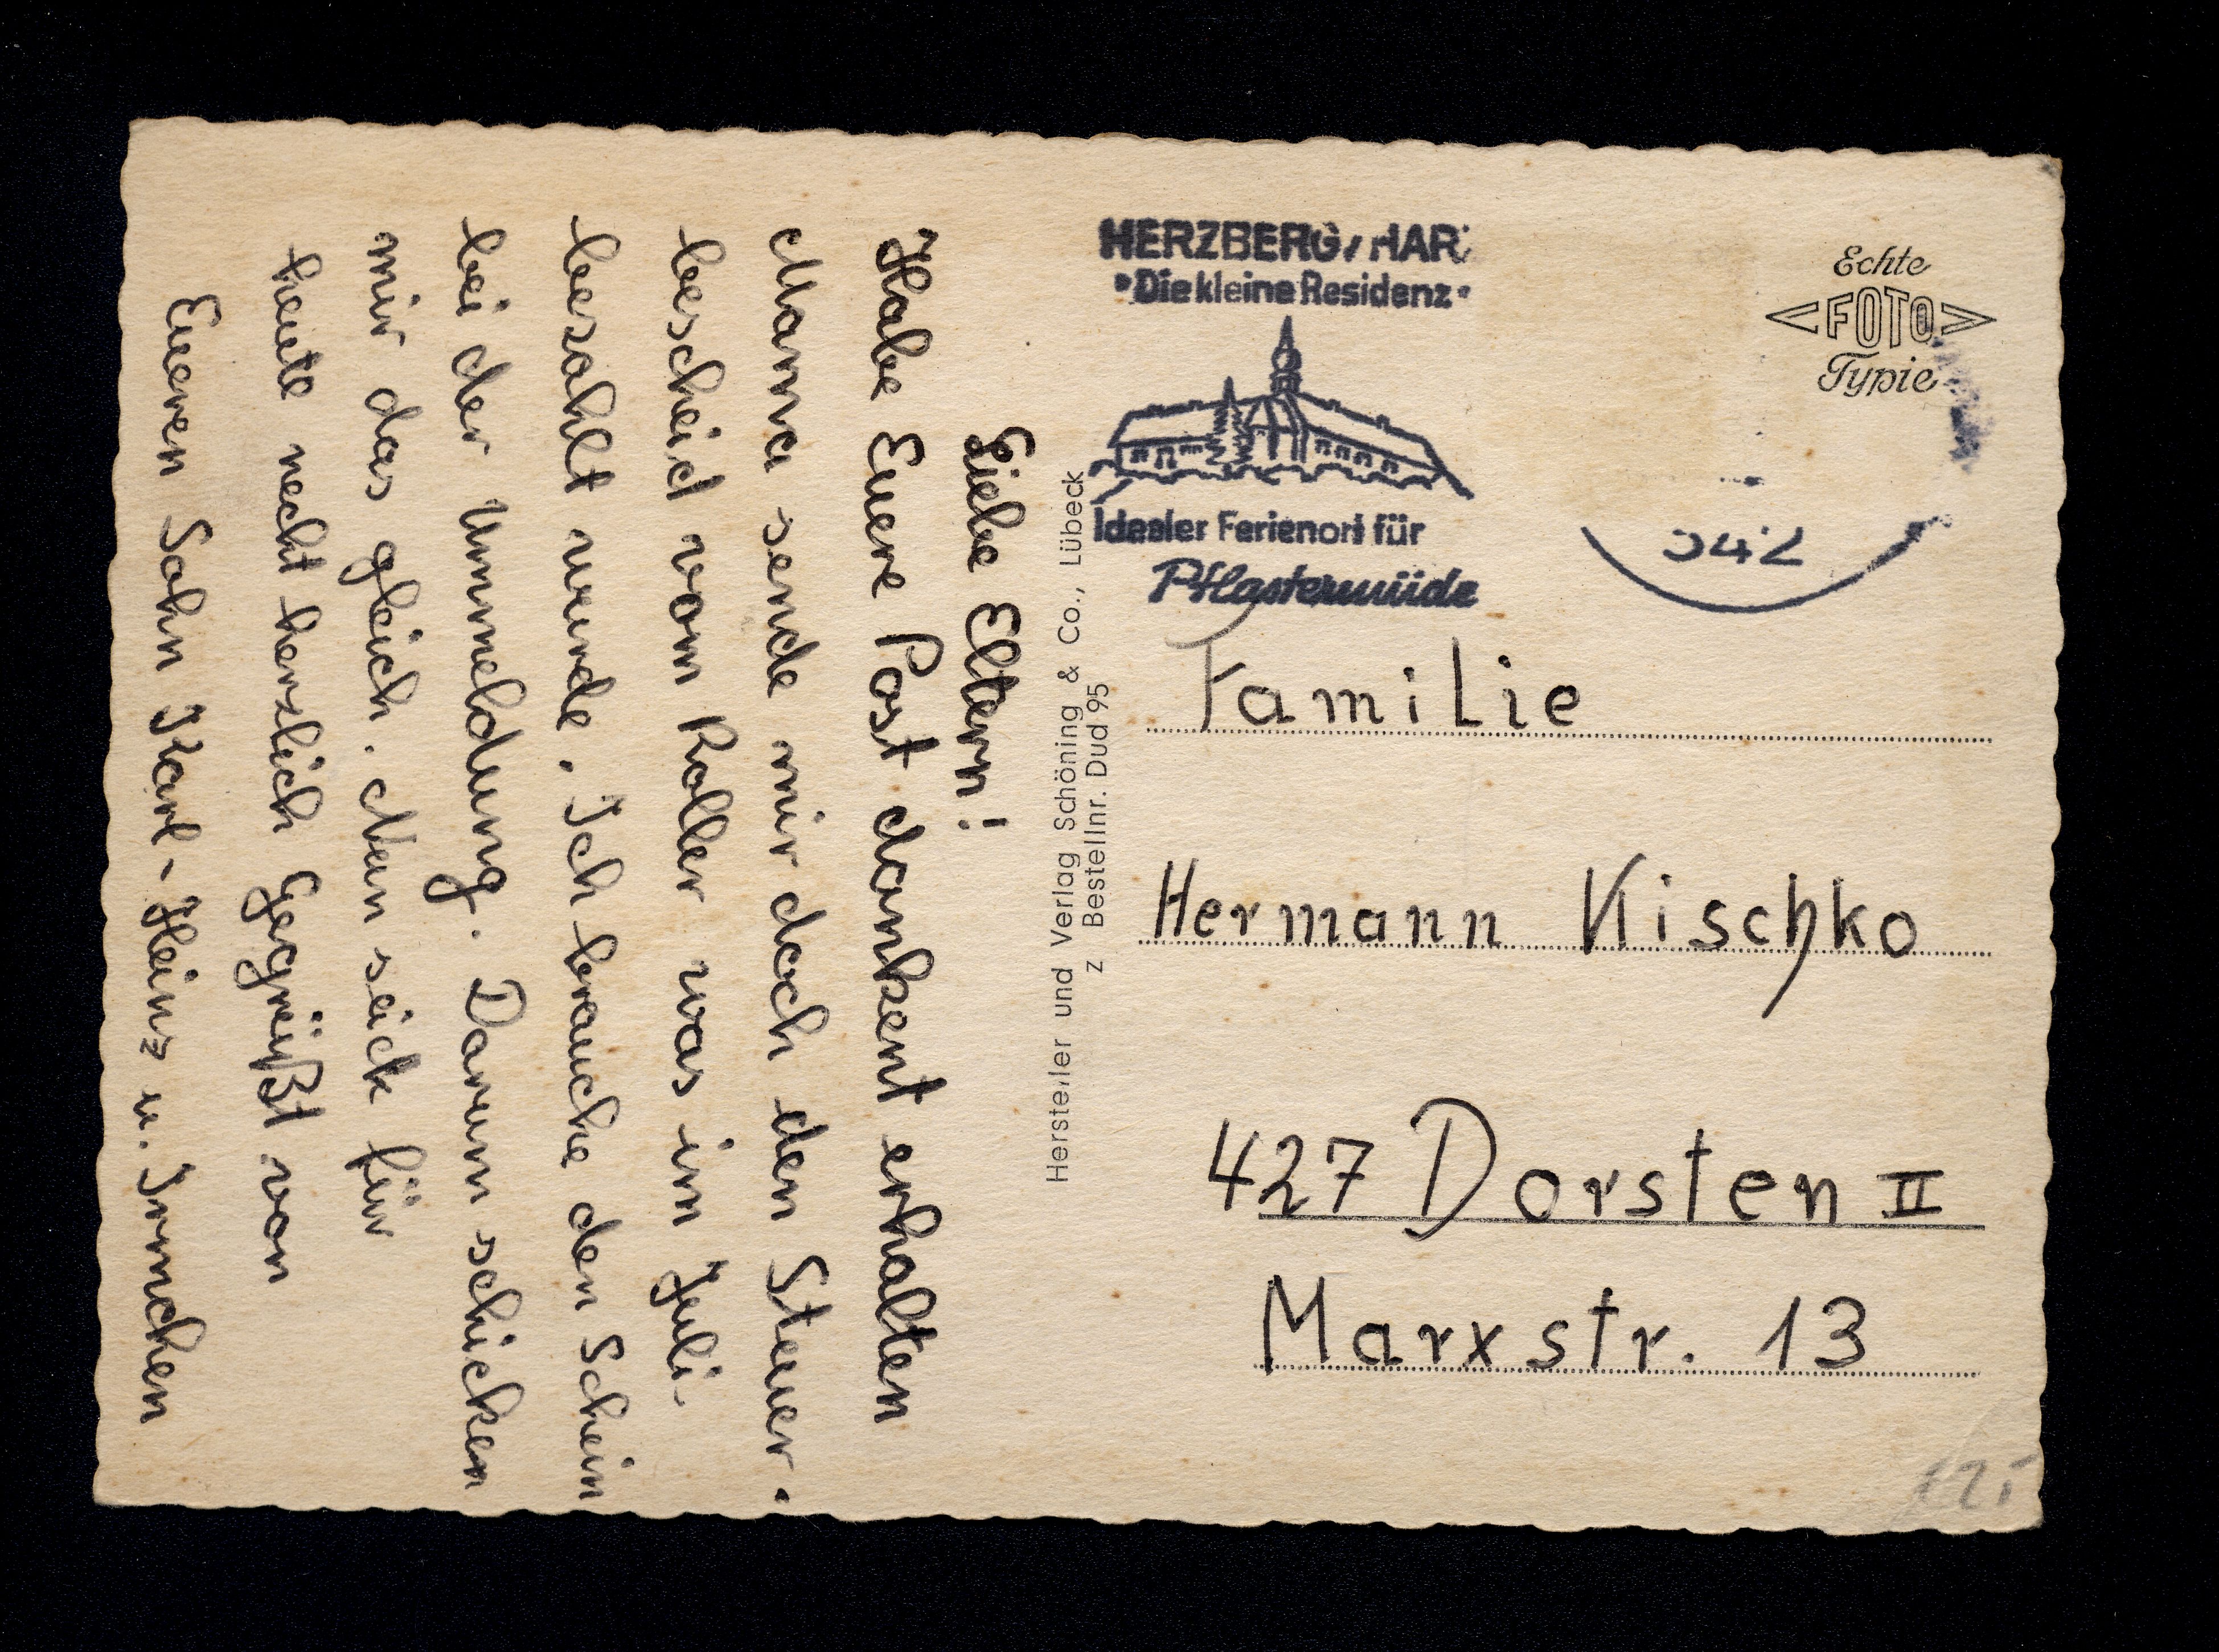 Liebe Eltern!
Habe Euere Post dankent erhalten
Mama sende mir doch den Steuer.
bescheid vom Roller was im Juli
bezahlt wurde. Ich brauche den Schein
bei der Ummeldung. Darum schicken
mir das gleich. Nun seid für
heute recht herzlich Gegrüßt von
Eueren Sohn Karl-Heinz u. Irmchen
Hersteller und Verlag Schöning & Co., Lübeck
z Bestellnr. Dud 95
HERZBERG/HAR
"Die kleine Residenz"
Idealer Ferienort für
Pflastermüde
Echte
FOTO
Typie
342
Familie
Hermann Kischko
427 Dorsten II
Marxstr. 13